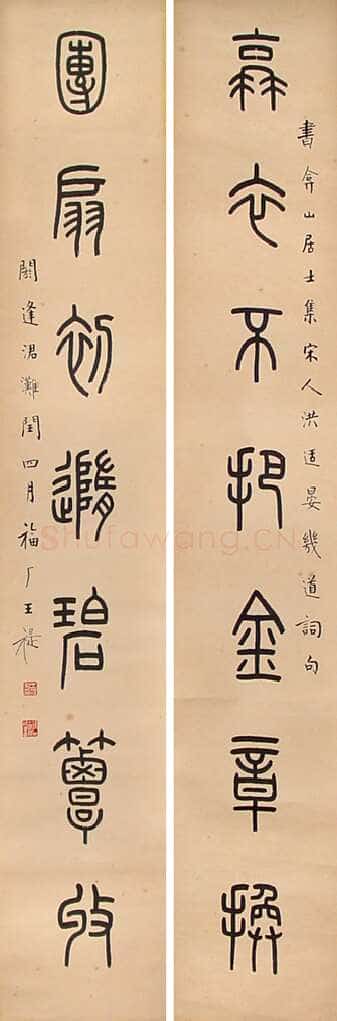 書弇山居士集宋人洪适晏幾道詞句
衣不把金章換
團扇初隨碧簟收
閼逢涒灘閏四月福厂王禔
Shufawang.CN